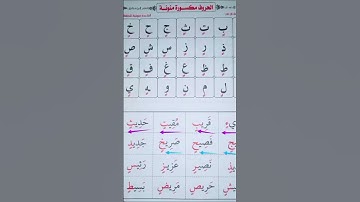 الحروف مكسورة منونة
بٍ تٍ ثٍ جٍ حٍ خٍ
ذٍ رٍ زٍ سٍ شٍ صٍ
طٍ ظٍ عٍ غٍ فٍ قٍ
لٍ مٍ نٍ وٍ هٍ يٍ
قَرِيبٍ مُقِيتٍ حَدِيثٍ
فَصِيحٍ صَرِيخٍ جَدِيدٍ
نَصِيرٍ عَزِيزٍ رَئِيسٍ
حَرِيصٍ مَرِيضٍ بَسِيطٍ